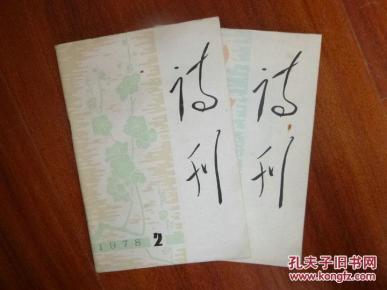 诗刊
1978 2
诗刊
孔夫子旧书网